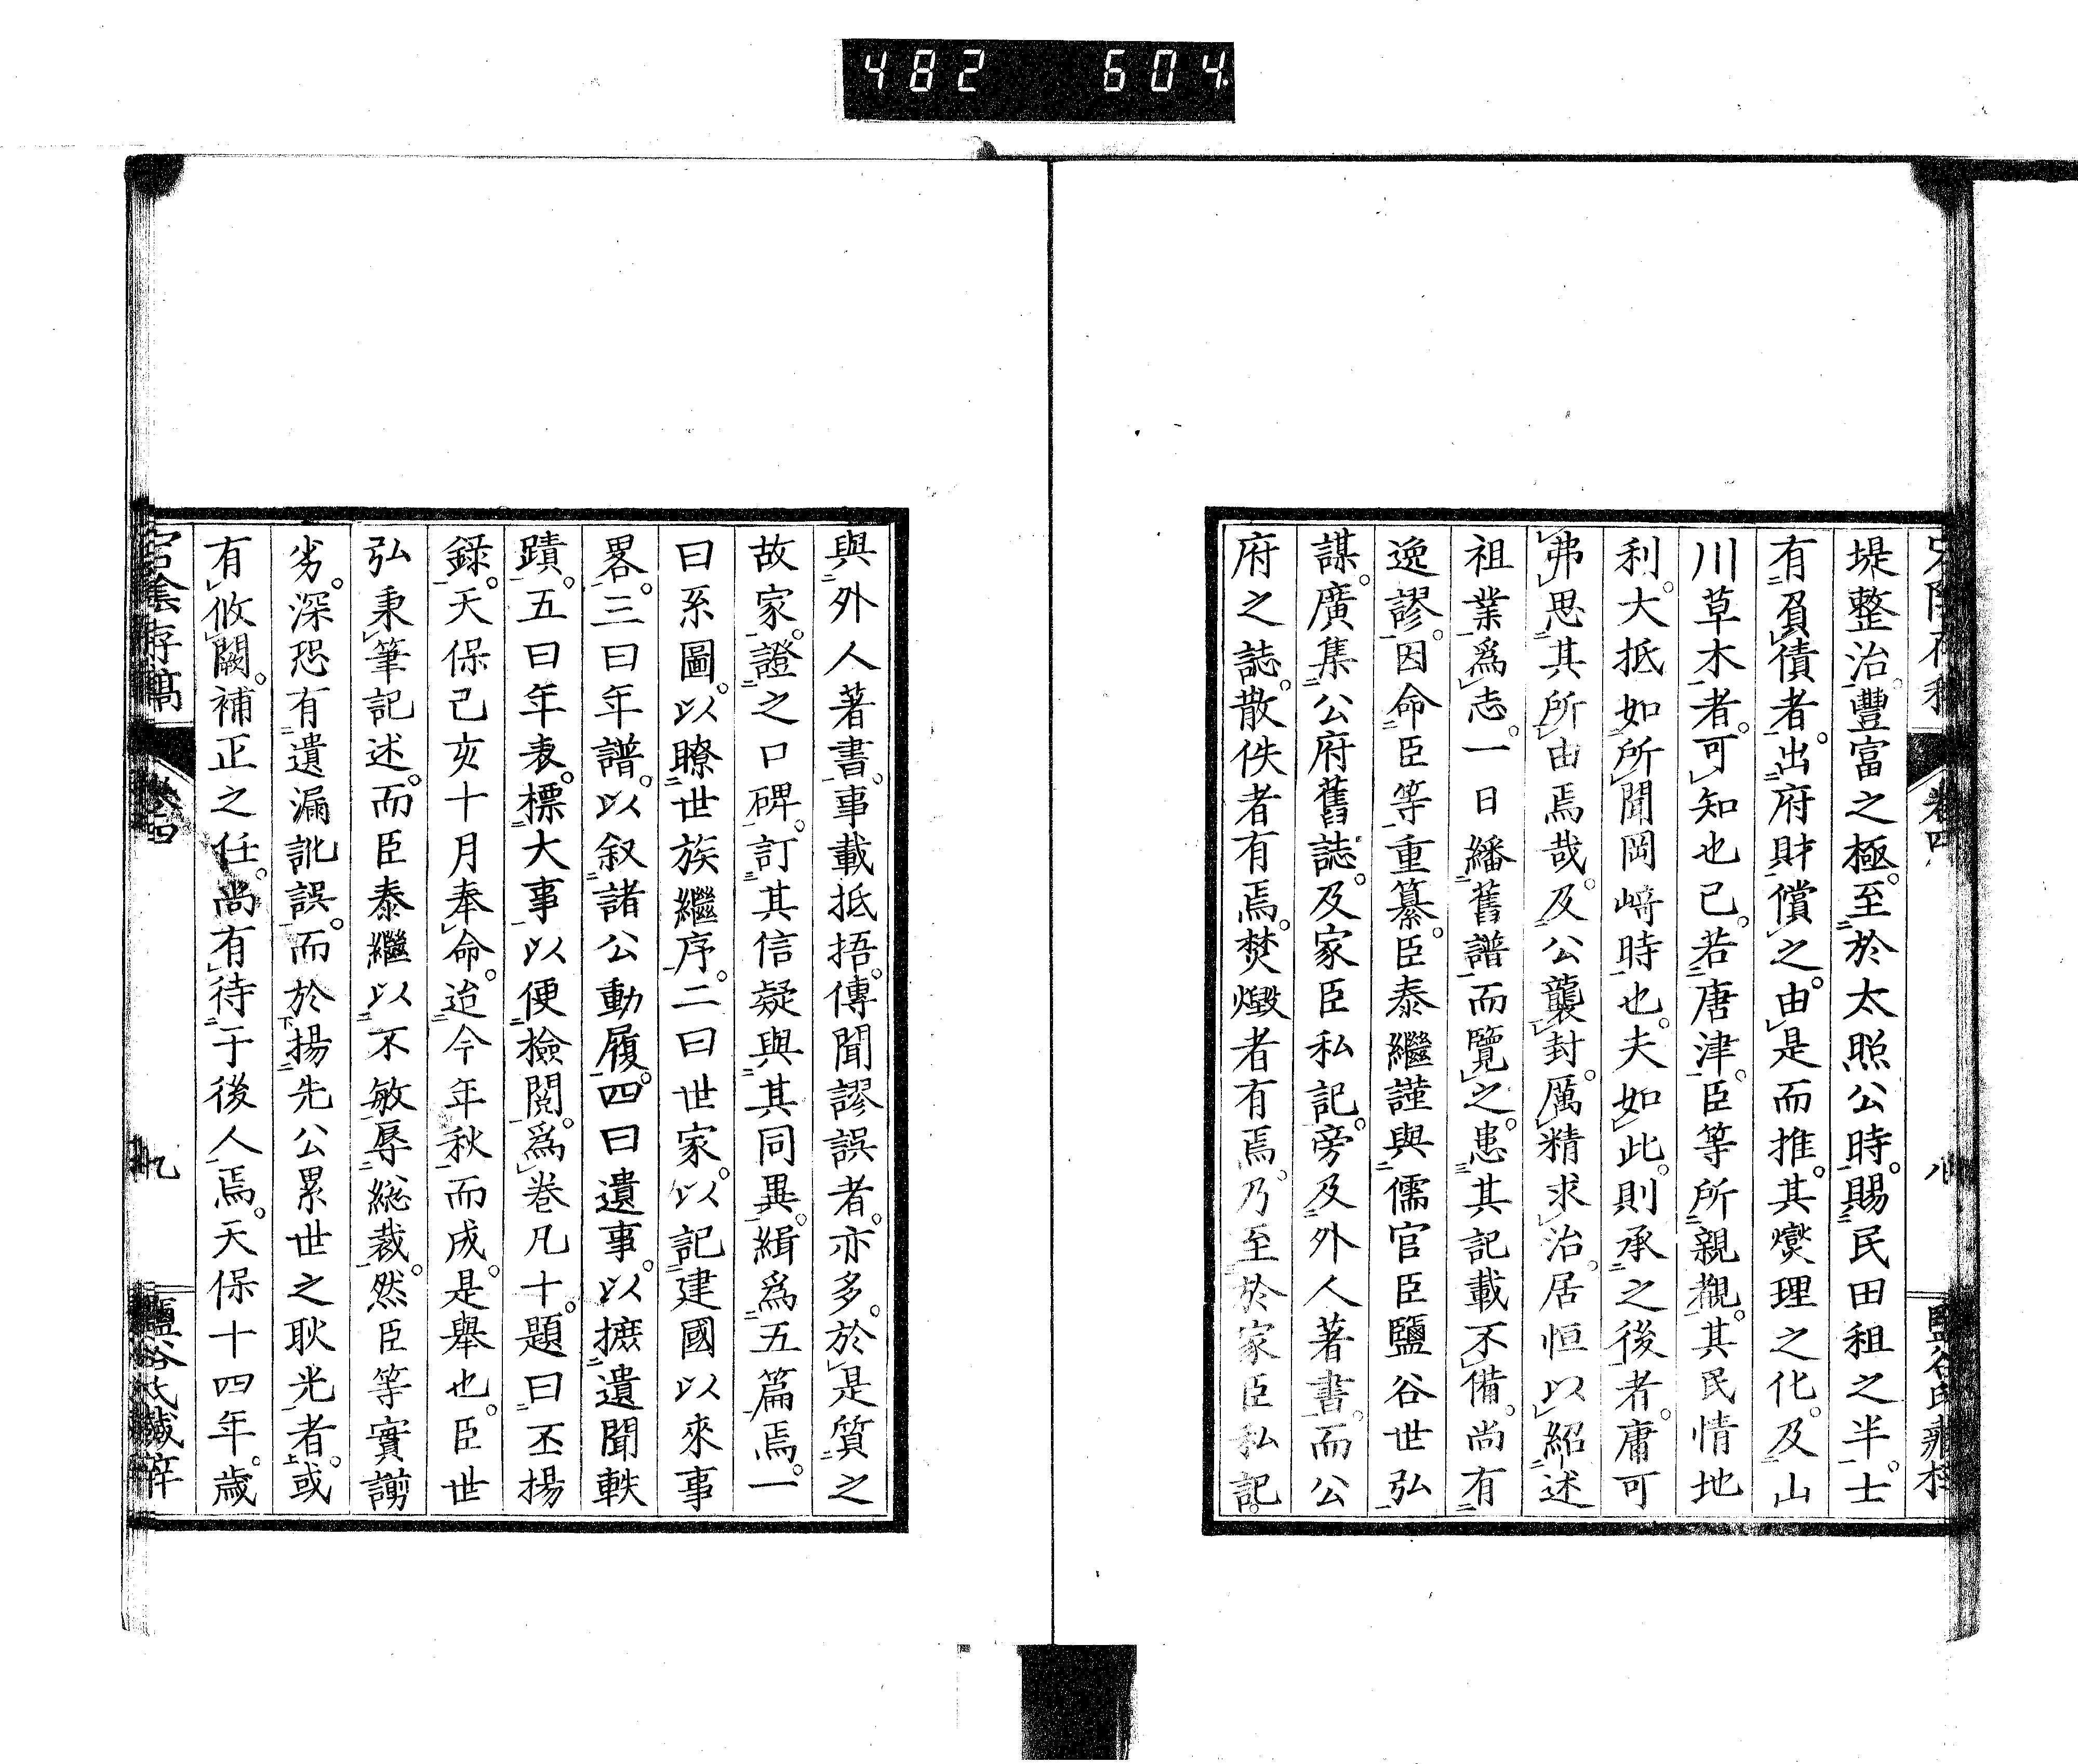 482 604
卷四
八
堤整治。豐富之極。至於太照公時。賜民田租之半。士
有負債者。出府財償之。由是而推。其爕理之化。及山
川草木者。可知也已。若唐津。臣等所親覩。其民情地
利。大抵如所聞岡﨑時也。夫如此。則承之後者。庸可
弗思其所由焉哉。及公襲封。厲精求治。居恒以紹述
祖業爲志。一日繙舊譜而覽之。患其記載不備。尚有
逸謬。因命臣等重纂。臣泰繼謹與儒官臣鹽谷世弘
謀。廣集公府舊誌。及家臣私記。旁及外人著書。而公
府之誌。散佚者有焉。焚燬者有焉。乃至於家臣私記。
與外人著書。事載抵捂。傳聞謬誤者。亦多。於是質之
故家。證之口碑。訂其信疑與其同異。緝爲五篇焉。一
曰系圖。以瞭世族繼序。二曰世家。以記建國以來事
畧。三曰年譜。以叙諸公動履。四曰遺事。以摭遺聞軼
蹟。五曰年表。標大事以便檢閲。爲卷凡十。題曰丕揚
錄。天保己亥十月奉命。迨今年秋而成。是舉也。臣世
弘秉筆記述。而臣泰繼以不敏辱總裁。然臣等實謭
劣。深恐有遺漏訛誤。而於揚先公累世之耿光者。或
有攸闕。補正之任。尚有待于後人焉。天保十四年。歲
宕陰存稿
卷四
九
鹽谷氏藏梓